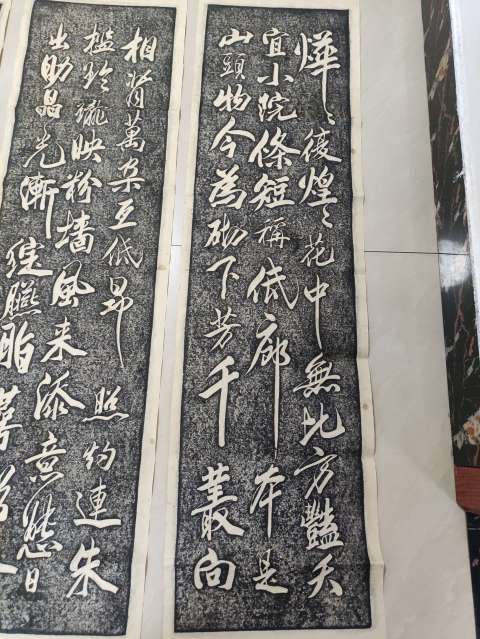 燁〻復煌〻花中無比方豔夭
宜小院條短稱低廊本是
山頭物今為砌下芳千叢向
相背萬朵互低昂照灼連朱
檻玲瓏映粉墻風来添意態日
出助晶光漸綻臙脂萼